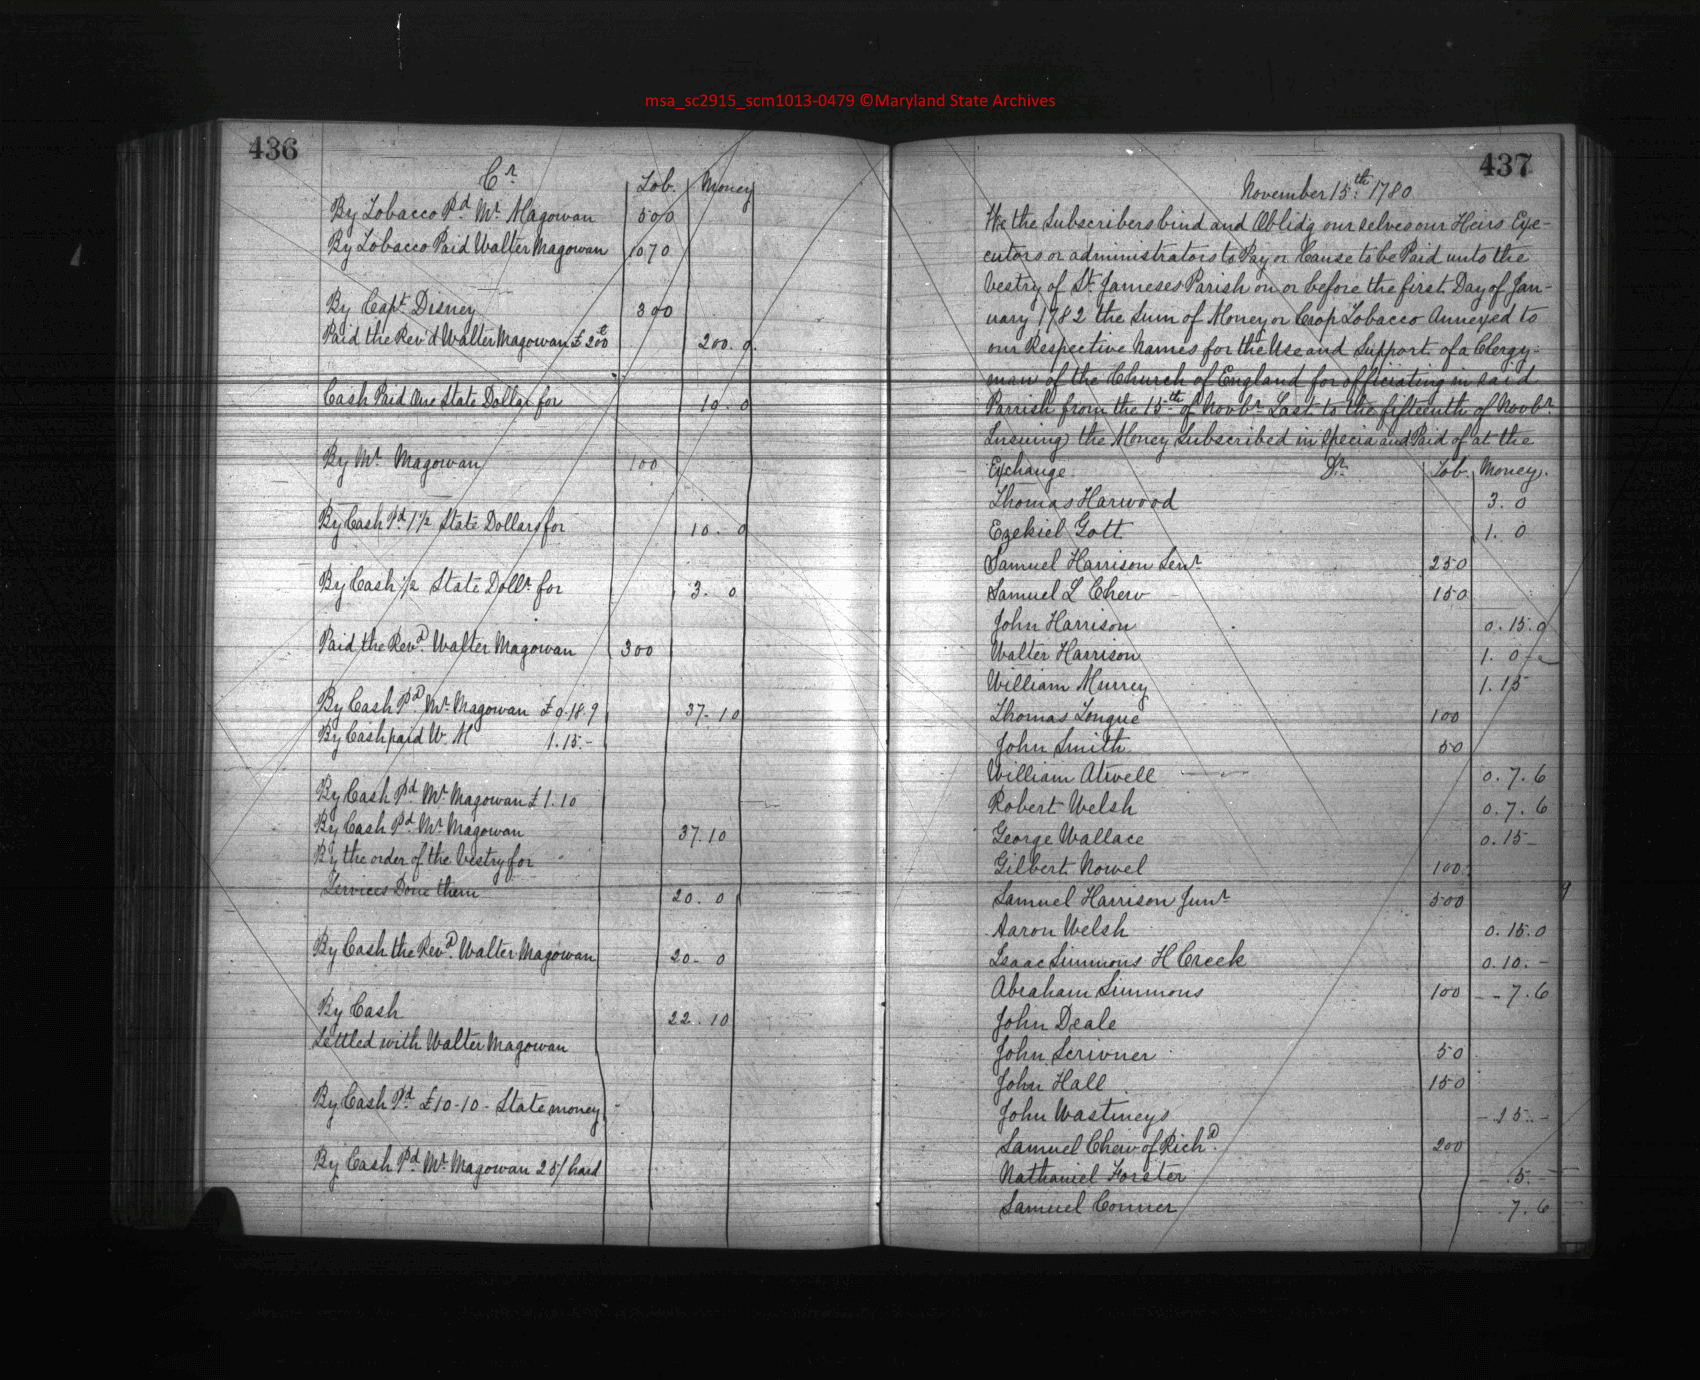 msa_sc2915_scm1013-0479 ©Maryland State Archives
436
Cr Tob. Money
By Tobacco Pd Mr. Magowan 500
By Tobacco Paid Walter Magowan 1070
By Capt. Disney 300
Paid the Rev'd Walter Magowan £200 200. 0.
Cash Paid one State Dollar for 10. 0
By Mr. Magowan 100
By Cash Pd 1½ State Dollars for 10. 0
By Cash ½ State Dollr for 3. 0
Paid the Revd. Walter Magowan 300
By Cash Pd Mr. Magowan £0.18.9 37.10
By Cash paid W. M 1.15.-
By Cash Pd Mr Magowan £1.10
By Cash Pd Mr Magowan 37.10
By the order of the Vestry for
Services Done them 20. 0
By Cash the Revd. Walter Magowan 20- 0
By Cash 22.10
Settled with Walter Magowan
By Cash Pd. £10-10- State money
By Cash Pd. Mr. Magowan 25/ hard
437
November 15th. 1780
We the Subscribers bind and Oblidg our selves our Heirs Exe-
cutors or administrators to Pay or Cause to be Paid unto the
Vestry of St. Jameses Parish on or before the first Day of Jan-
uary 1782 the Sum of Money or Crop Tobacco Annexed to
our Respective Names for the Use and Support of a Clergy-
man of the Church of England for officiating in said
Parrish from the 15th of Novbr Last to the fifteenth of Novbr.
Insuing) the Money Subscribed in Specia and Paid of at the
Exchange. Dr. Tob. Money.
Thomas Harwood 3. 0
Ezekiel Gott 1. 0
Samuel Harrison Senr. 250
Samuel L Chew 150
John Harrison 0.15.0
Walter Harrison 1. 0
William Murrey 1.15
Thomas Tongue 100
John Smith 50
William Atwell 0.7.6
Robert Welsh 0.7.6
George Wallace 0.15-
Gilbert Nowel 100
Samuel Harrison Junr. 500
Aaron Welsh 0.15.0
Isaac Simmons H Creek 0.10.-
Abraham Simmons 100 --7.6
John Deale
John Scrivner 50
John Hall 150
John Wastineys -15.-
Samuel Chew of Richd. 200
Nathaniel Forster - 5.-
Samuel Conner 7.6